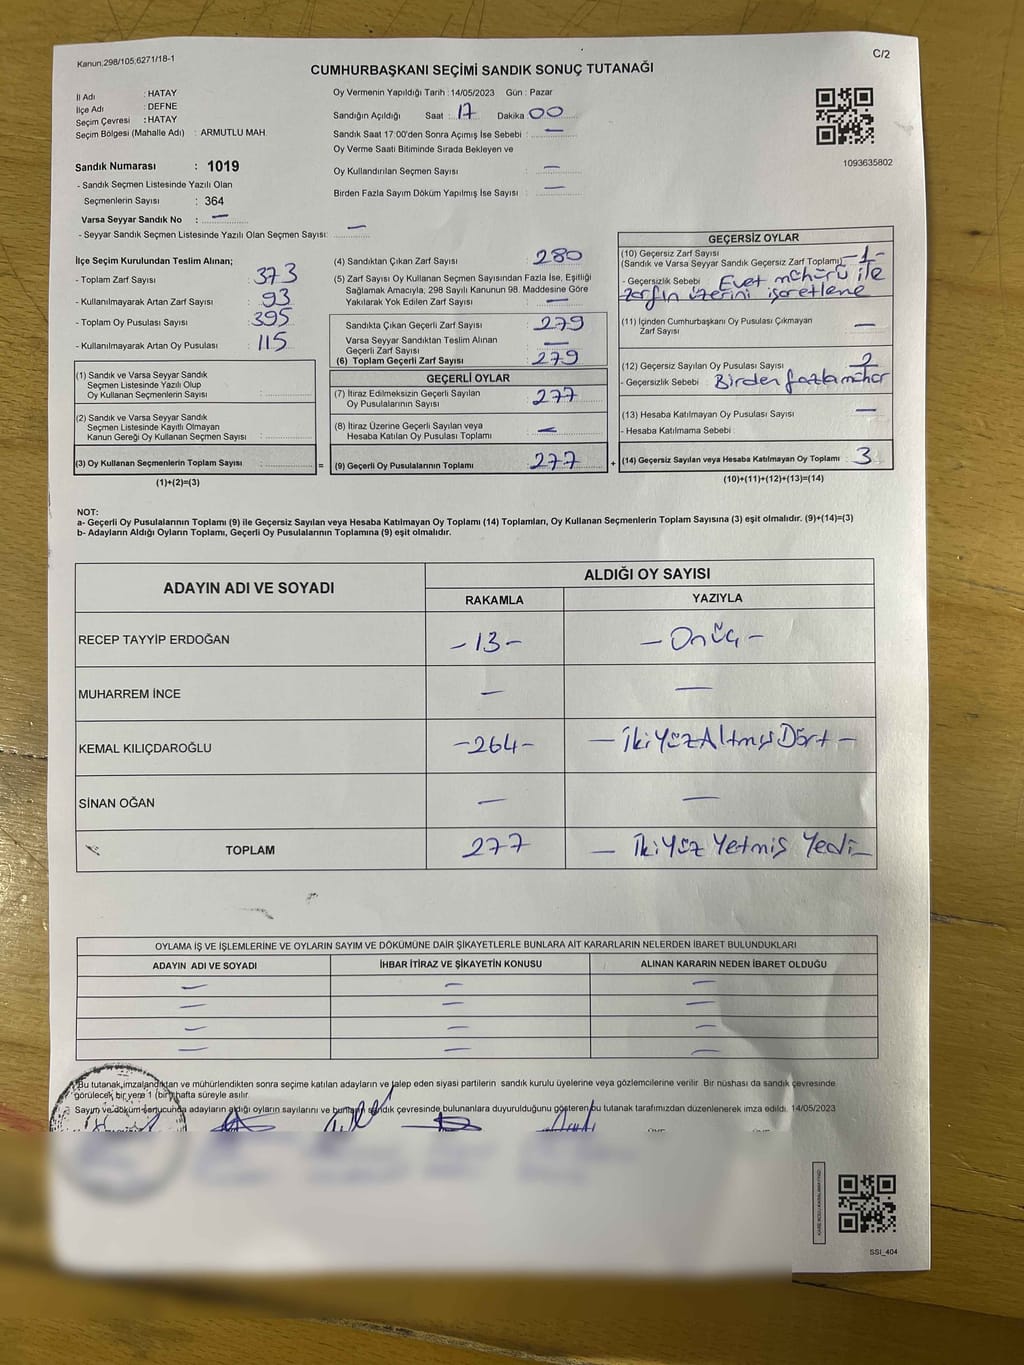 Kanun.298/105;6271/18-1
C/2
CUMHURBAŞKANI SEÇİMİ SANDIK SONUÇ TUTANAĞI
İl Adı : HATAY
İlçe Adı : DEFNE
Seçim Çevresi : HATAY
Seçim Bölgesi (Mahalle Adı) : ARMUTLU MAH.
Sandık Numarası : 1019
- Sandık Seçmen Listesinde Yazılı Olan
Seçmenlerin Sayısı : 364
Varsa Seyyar Sandık No : —
- Seyyar Sandık Seçmen Listesinde Yazılı Olan Seçmen Sayısı: —
Oy Vermenin Yapıldığı Tarih : 14/05/2023 Gün : Pazar
Sandığın Açıldığı Saat : 17 Dakika : 00
Sandık Saat 17:00'den Sonra Açımış İse Sebebi : —
Oy Verme Saati Bitiminde Sırada Bekleyen ve
Oy Kullandırılan Seçmen Sayısı : —
Birden Fazla Sayım Döküm Yapılmış İse Sayısı : —
1093635802
İlçe Seçim Kurulundan Teslim Alınan;
- Toplam Zarf Sayısı : 373
- Kullanılmayarak Artan Zarf Sayısı : 93
- Toplam Oy Pusulası Sayısı : 395
- Kullanılmayarak Artan Oy Pusulası : 115
(1) Sandık ve Varsa Seyyar Sandık
Seçmen Listesinde Yazılı Olup
Oy Kullanan Seçmenlerin Sayısı :
(2) Sandık ve Varsa Seyyar Sandık
Seçmen Listesinde Kayıtlı Olmayan
Kanun Gereği Oy Kullanan Seçmen Sayısı :
(3) Oy Kullanan Seçmenlerin Toplam Sayısı :
(1)+(2)=(3)
(4) Sandıktan Çıkan Zarf Sayısı : 280
(5) Zarf Sayısı Oy Kullanan Seçmen Sayısından Fazla İse, Eşitliği
Sağlamak Amacıyla, 298 Sayılı Kanunun 98. Maddesine Göre
Yakılarak Yok Edilen Zarf Sayısı : —
Sandıkta Çıkan Geçerli Zarf Sayısı : 279
Varsa Seyyar Sandıktan Teslim Alınan
Geçerli Zarf Sayısı : —
(6) Toplam Geçerli Zarf Sayısı : 279
GEÇERLİ OYLAR
(7) İtiraz Edilmeksizin Geçerli Sayılan
Oy Pusulalarının Sayısı : 277
(8) İtiraz Üzerine Geçerli Sayılan veya
Hesaba Katılan Oy Pusulası Toplamı : —
= (9) Geçerli Oy Pusulalarının Toplamı : 277 +
GEÇERSİZ OYLAR
(10) Geçersiz Zarf Sayısı
(Sandık ve Varsa Seyyar Sandık Geçersiz Zarf Toplamı) : -1-
- Geçersizlik Sebebi : Evet mühürü ile
zarfın üzerini işaretleme
(11) İçinden Cumhurbaşkanı Oy Pusulası Çıkmayan
Zarf Sayısı : —
(12) Geçersiz Sayılan Oy Pusulası Sayısı : 2
- Geçersizlik Sebebi : Birden fazla mühür
(13) Hesaba Katılmayan Oy Pusulası Sayısı : —
- Hesaba Katılmama Sebebi :
(14) Geçersiz Sayılan veya Hesaba Katılmayan Oy Toplamı : 3
(10)+(11)+(12)+(13)=(14)
NOT:
a- Geçerli Oy Pusulalarının Toplamı (9) ile Geçersiz Sayılan veya Hesaba Katılmayan Oy Toplamı (14) Toplamları, Oy Kullanan Seçmenlerin Toplam Sayısına (3) eşit olmalıdır. (9)+(14)=(3)
b- Adayların Aldığı Oyların Toplamı, Geçerli Oy Pusulalarının Toplamına (9) eşit olmalıdır.
ADAYIN ADI VE SOYADI ALDIĞI OY SAYISI
RAKAMLA YAZIYLA
RECEP TAYYİP ERDOĞAN -13- - Onüç -
MUHARREM İNCE — —
KEMAL KILIÇDAROĞLU -264- - İkiYüzAltmışDört -
SİNAN OĞAN — —
TOPLAM 277 - İkiYüz Yetmiş Yedi -
OYLAMA İŞ VE İŞLEMLERİNE VE OYLARIN SAYIM VE DÖKÜMÜNE DAİR ŞİKAYETLERLE BUNLARA AİT KARARLARIN NELERDEN İBARET BULUNDUKLARI
ADAYIN ADI VE SOYADI İHBAR İTİRAZ VE ŞİKAYETİN KONUSU ALINAN KARARIN NEDEN İBARET OLDUĞU
— — —
— — —
— — —
— — —
Bu tutanak,imzalandıktan ve mühürlendikten sonra seçime katılan adayların ve talep eden siyasi partilerin sandık kurulu üyelerine veya gözlemcilerine verilir. Bir nüshası da sandık çevresinde
görülecek bir yere 1 (bir) hafta süreyle asılır.
Sayım ve döküm sonucunda adayların aldığı oyların sayılarını ve bunların sandık çevresinde bulunanlara duyurulduğunu gösteren bu tutanak tarafımızdan düzenlenerek imza edildi. 14/05/2023
SSI_404